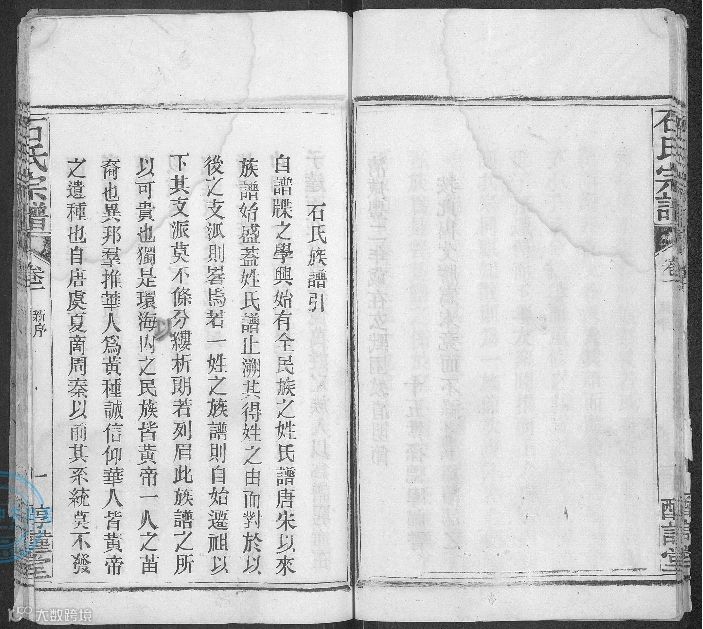 石氏宗譜
卷一
石氏族譜引
自譜牒之學興始有全民族之姓氏譜唐宋以來
族譜始盛蓋姓氏譜止溯其得姓之由而對於以
後之支派則畧焉若一姓之族譜則自始遷祖以
下其支派莫不條分縷析朗若列眉此族譜之所
以可貴也獨是環海內之民族皆黃帝一人之苗
裔也異邦羣推華人為黃種誠信仰華人皆黃帝
之遺種也自唐虞夏商周秦以前其系統莫不發
石氏宗譜
卷一
新序
一
惇謹堂
大数跨境